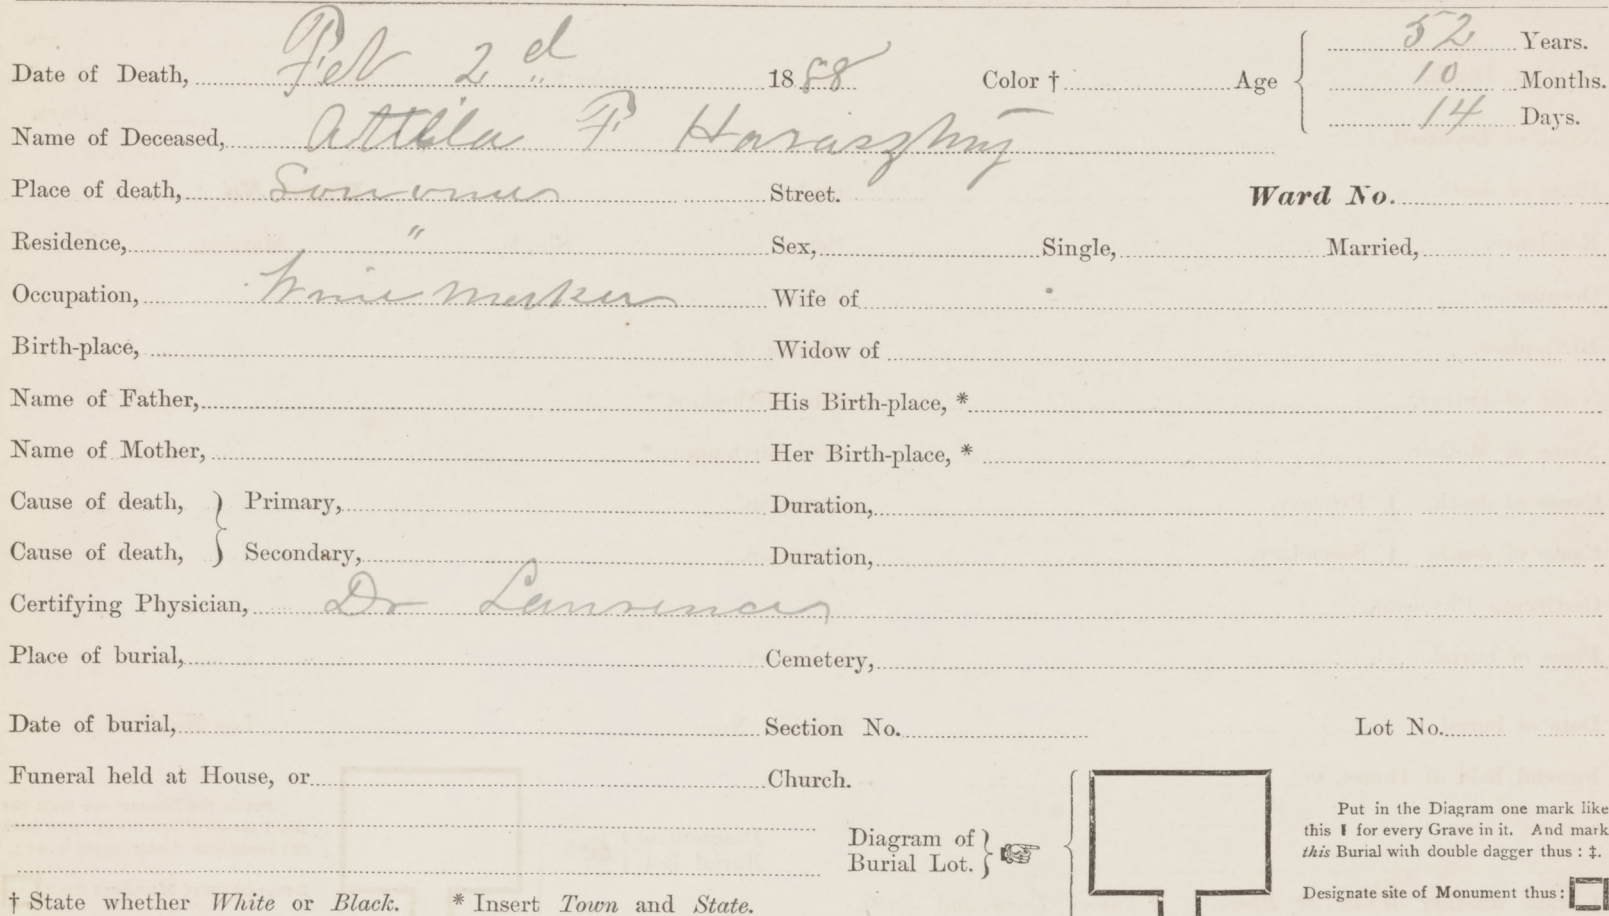 Date of Death, Feb 2d 1888 Color † Age 52 Years.
10 Months.
14 Days.
Name of Deceased, Attila F Haraszthy
Place of death, Sonoma Street. Ward No.
Residence, " Sex, Single, Married,
Occupation, Wine Maker Wife of
Birth-place, Widow of
Name of Father, His Birth-place, *
Name of Mother, Her Birth-place, *
Cause of death, } Primary, Duration,
Cause of death, } Secondary, Duration,
Certifying Physician, Dr Lawrence
Place of burial, Cemetery,
Date of burial, Section No. Lot No.
Funeral held at House, or Church.
Diagram of
Burial Lot.
Put in the Diagram one mark like
this ❙ for every Grave in it. And mark
this Burial with double dagger thus : ‡.
Designate site of Monument thus :
† State whether White or Black. * Insert Town and State.